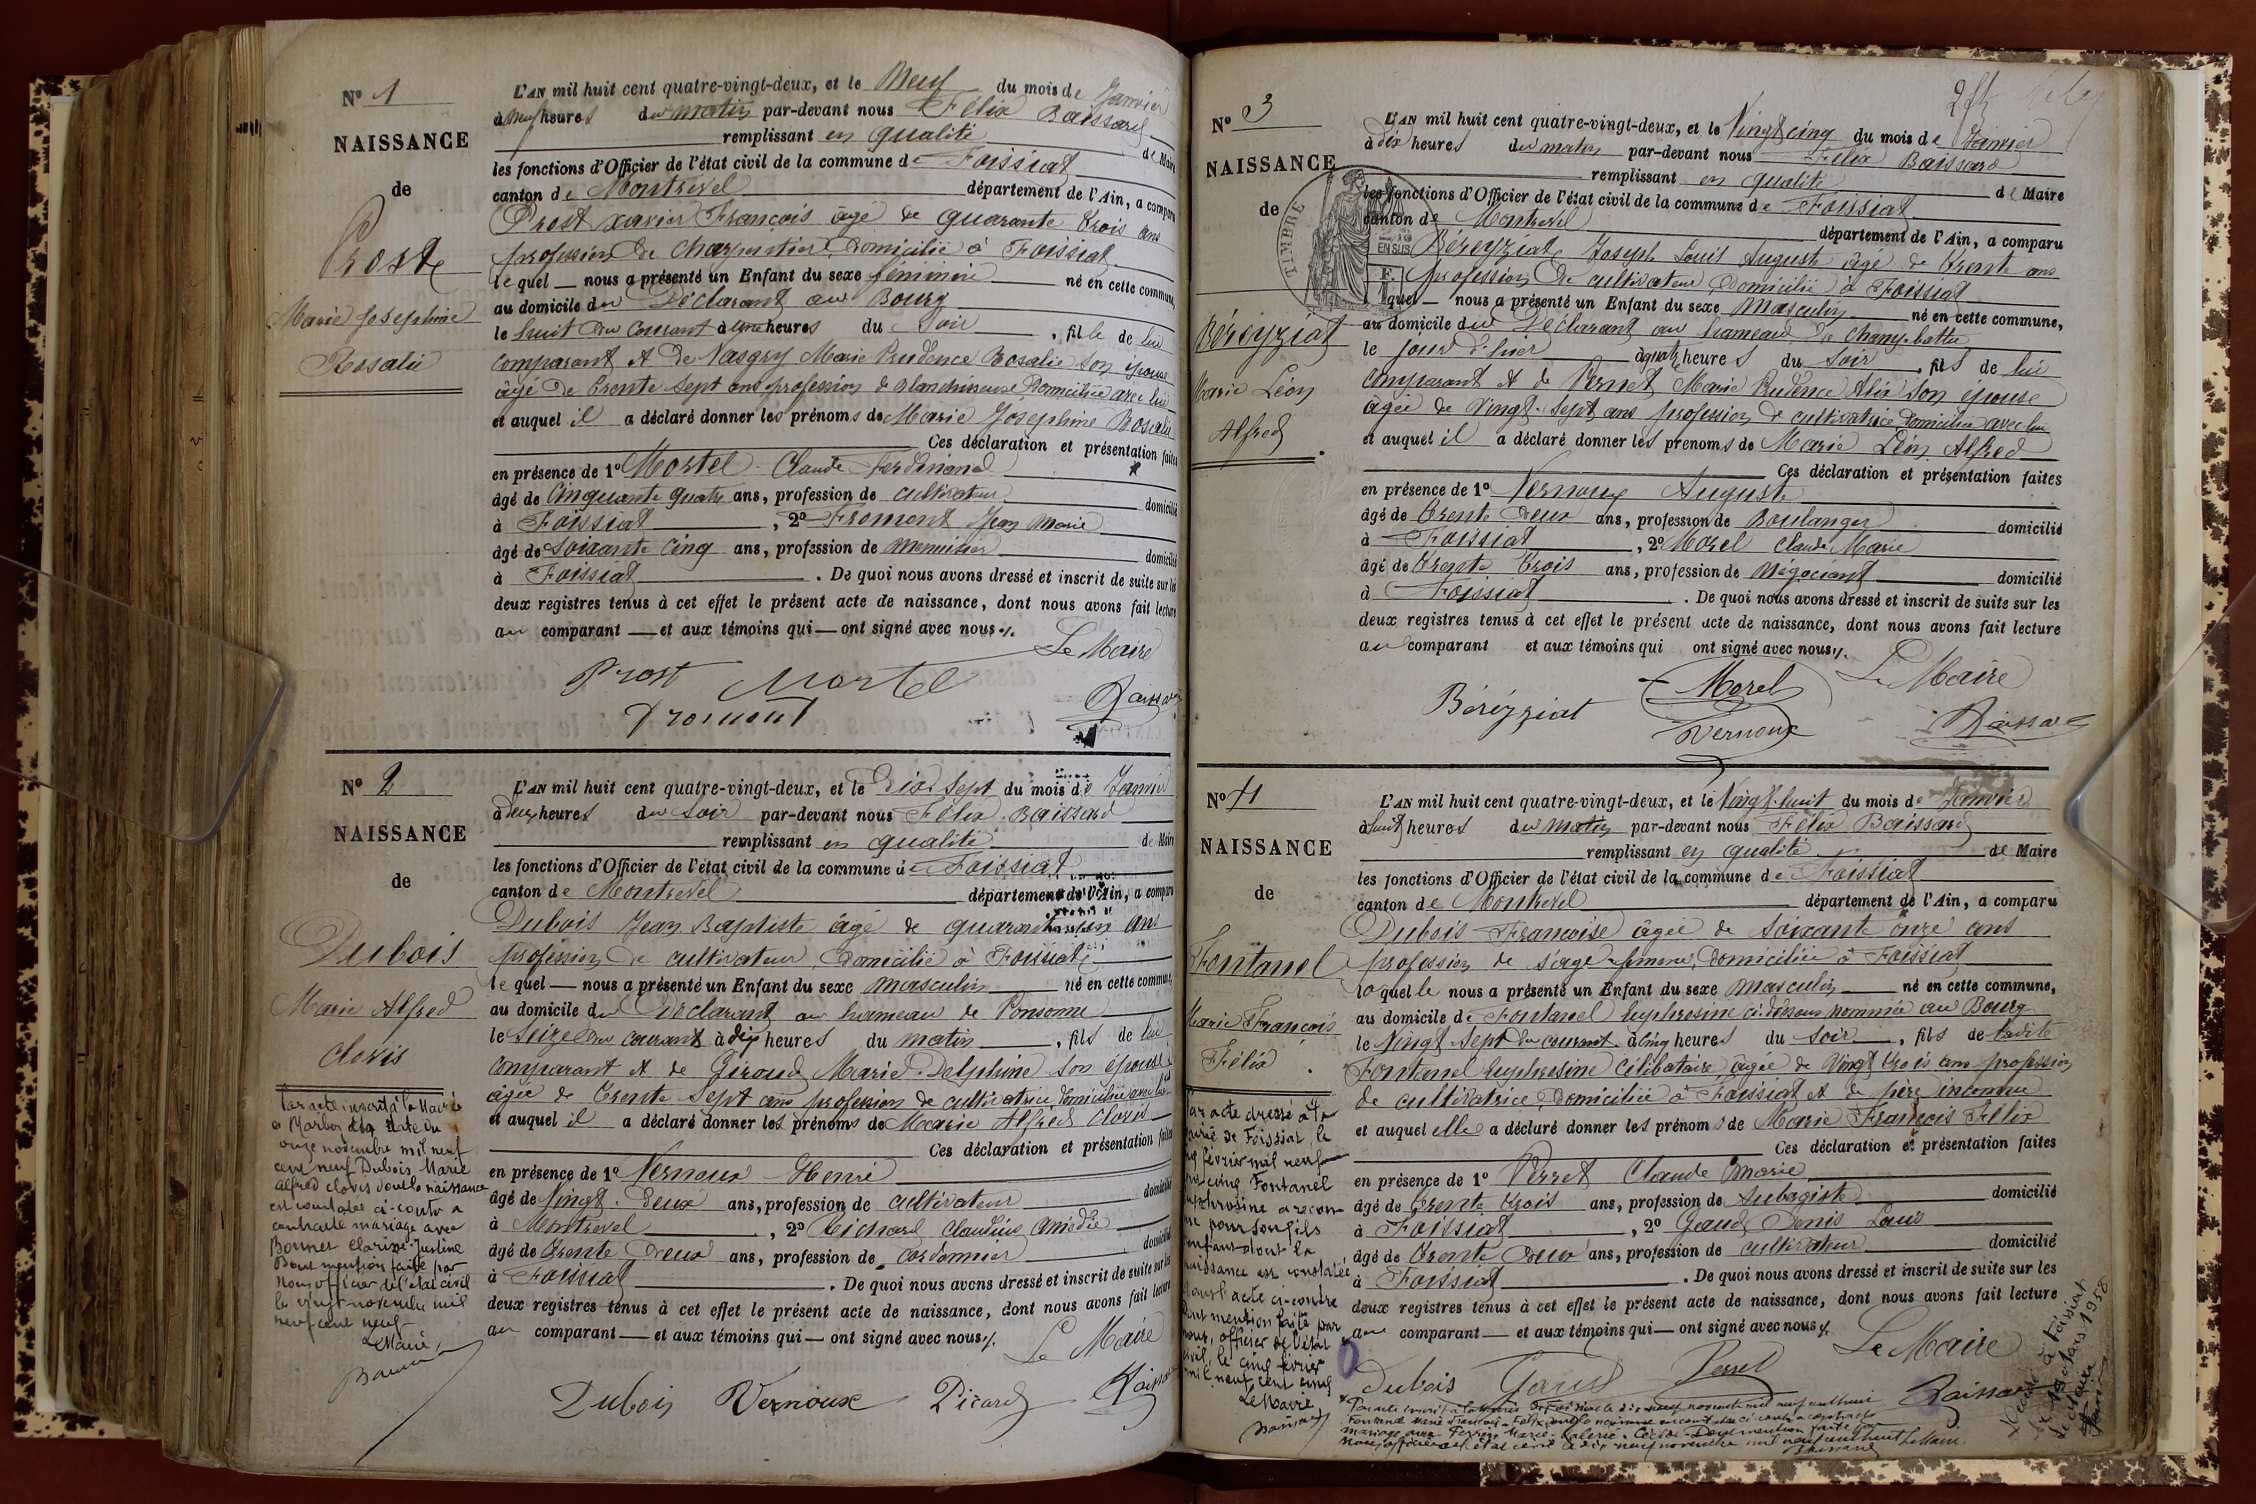 N° 1
NAISSANCE
de
Prost
Marie Josephine
Rosalie
L'AN mil huit cent quatre-vingt-deux, et le Neuf du mois de Janvier
à neuf heures du matin par-devant nous Félix Baissard
remplissant en qualité de Maire
les fonctions d'Officier de l'état civil de la commune de Foissiat
canton de Montrevel département de l'Ain, a comparu
Prost xavier François âgé de quarante trois ans
profession de charpentier domicilié à Foissiat
lequel nous a présenté un Enfant du sexe féminin né en cette commune,
au domicile du Déclarant au Bourg
le huit du courant à heures du soir, fille de lui
comparant et de Marie Prudence Rosalie son épouse
âgée de trente sept ans profession de blanchisseuse domiciliée avec lui
et auquel il a déclaré donner les prénoms de Marie Josephine Rosalie
Ces déclaration et présentation faites
en présence de 1° Mortel Claude Ferdinand
âgé de cinquante quatre ans, profession de cultivateur domicilié
à Foissiat, 2° Fromont Jean Marie
âgé de soixante cinq ans, profession de menuisier domicilié
à Foissiat. De quoi nous avons dressé et inscrit de suite sur les
deux registres tenus à cet effet le présent acte de naissance, dont nous avons fait lecture
au comparant et aux témoins qui ont signé avec nous
Le Maire
Prost Mortel
Fromont Baissard
N° 2
NAISSANCE
de
Dubois
Marie Alfred
Clovis
Par acte inscrit à la Mairie
à Marboz à la date du
onze novembre mil neuf
cent neuf Dubois Marie
Alfred Clovis dont la naissance
est constatée ci-contre a
contracté mariage avec
Clarisse Justine
Dont mention faite par
Nous officier de l'état civil
le vingt novembre mil
neuf cent neuf
Le Maire,
L'AN mil huit cent quatre-vingt-deux, et le Dix Sept du mois de Janvier
à heures du soir par-devant nous Félix Baissard
remplissant en qualité de Maire
les fonctions d'Officier de l'état civil de la commune de Foissiat
canton de Montrevel département de l'Ain, a comparu
Dubois Jean Baptiste âgé de ans
profession de cultivateur, domicilié à Foissiat
lequel nous a présenté un Enfant du sexe masculin né en cette commune,
au domicile du Déclarant au hameau de Ponsonne
le seize du courant à dix heures du matin, fils de lui
comparant et de Giroud Marie Delphine son épouse
âgée de trente sept ans profession de cultivatrice domiciliée avec lui
et auquel il a déclaré donner les prénoms de Marie Alfred Clovis
Ces déclaration et présentation faites
en présence de 1° Vernoux Henri
âgé de vingt deux ans, profession de cultivateur domicilié
à Montrevel, 2° Claudius Amédée
âgé de trente deux ans, profession de cordonnier domicilié
à Foissiat. De quoi nous avons dressé et inscrit de suite sur les
deux registres tenus à cet effet le présent acte de naissance, dont nous avons fait lecture
au comparant et aux témoins qui ont signé avec nous
Le Maire
Dubois Vernoux Picard Baissard
N° 3
NAISSANCE
de
Béreyziat
Marie Léon
Alfred
TIMBRE
EN SUS
L'AN mil huit cent quatre-vingt-deux, et le Vingt cinq du mois de Janvier
à dix heures du matin par-devant nous Félix Baissard
remplissant en qualité de Maire
les fonctions d'Officier de l'état civil de la commune de Foissiat
canton de Montrevel département de l'Ain, a comparu
Béreyziat Joseph Louis Auguste âgé de trente ans
profession de cultivateur domicilié à Foissiat
lequel nous a présenté un Enfant du sexe masculin né en cette commune,
au domicile du Déclarant au hameau de
le jour d'hier à quatre heures du soir, fils de lui
comparant et de Pernet Marie Prudence Alix son épouse
âgée de vingt-sept ans profession de cultivatrice domiciliée avec lui
et auquel il a déclaré donner les prénoms de Marie Léon Alfred
Ces déclaration et présentation faites
en présence de 1° Vernoux Auguste
âgé de trente deux ans, profession de Boulanger domicilié
à Foissiat, 2° Morel Claude Marie
âgé de trente trois ans, profession de négociant domicilié
à Foissiat. De quoi nous avons dressé et inscrit de suite sur les
deux registres tenus à cet effet le présent acte de naissance, dont nous avons fait lecture
au comparant et aux témoins qui ont signé avec nous
Le Maire
Béreyziat Morel
Vernoux Baissard
N° 4
NAISSANCE
de
Fontanel
Marie François
Félix
Par acte dressé à la
mairie de Foissiat, le
cinq février mil neuf
cent cinq Fontanel
Euphrosine a reconnu
pour son fils
l'enfant dont la
naissance est constatée
dans l'acte ci-contre
Dont mention faite par
nous, officier de l'état
civil, le cinq février
mil neuf cent cinq
Le Maire
L'AN mil huit cent quatre-vingt-deux, et le Vingt-huit du mois de Janvier
à huit heures du matin par-devant nous Félix Baissard
remplissant en qualité de Maire
les fonctions d'Officier de l'état civil de la commune de Foissiat
canton de Montrevel département de l'Ain, a comparu
Dubois Françoise âgée de soixante onze ans
profession de sage-femme, domiciliée à Foissiat
laquelle nous a présenté un Enfant du sexe masculin né en cette commune,
au domicile de Fontanel Euphrosine ci-dessous nommée au Bourg
le vingt-sept du courant à cinq heures du soir, fils de ladite
Fontanel Euphrosine célibataire âgée de vingt trois ans profession
de cultivatrice, domiciliée à Foissiat et de père inconnu
et auquel elle a déclaré donner les prénoms de Marie François Félix
Ces déclaration et présentation faites
en présence de 1° Perret Claude Marie
âgé de trente trois ans, profession de domicilié
à Foissiat, 2° Gaud Denis Louis
âgé de trente deux ans, profession de cultivateur domicilié
à Foissiat. De quoi nous avons dressé et inscrit de suite sur les
deux registres tenus à cet effet le présent acte de naissance, dont nous avons fait lecture
au comparant et aux témoins qui ont signé avec nous
Le Maire
Dubois Gaud Perret Baissard
Fontanel Marie François Félix
mariage avec
nous officier de l'état civil le dix neuf novembre mil neuf cent huit Le Maire
Décédé à Foissiat
1958